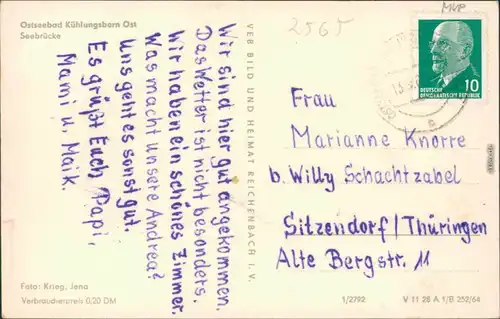 Ostseebad Kühlungsborn Ost
Seebrücke
Wir sind hier gut angekommen.
Das Wetter ist nicht besonders.
Wir haben ein schönes Zimmer.
Was macht unsere Andrea?
Uns geht es sonst gut.
Es grüßt Euch Papi,
Mami u. Maik.
Foto: Krieg, Jena
Verbraucherpreis 0,20 DM
VEB BILD UND HEIMAT REICHENBACH I. V.
2565
MKP
DEUTSCHE
DEMOKRATISCHE REPUBLIK
10
Frau
Marianne Knorre
b. Willy Schachtzabel
Sitzendorf/Thüringen
Alte Bergstr. 11
1/2792
V 11 28 A 1/B 252/64